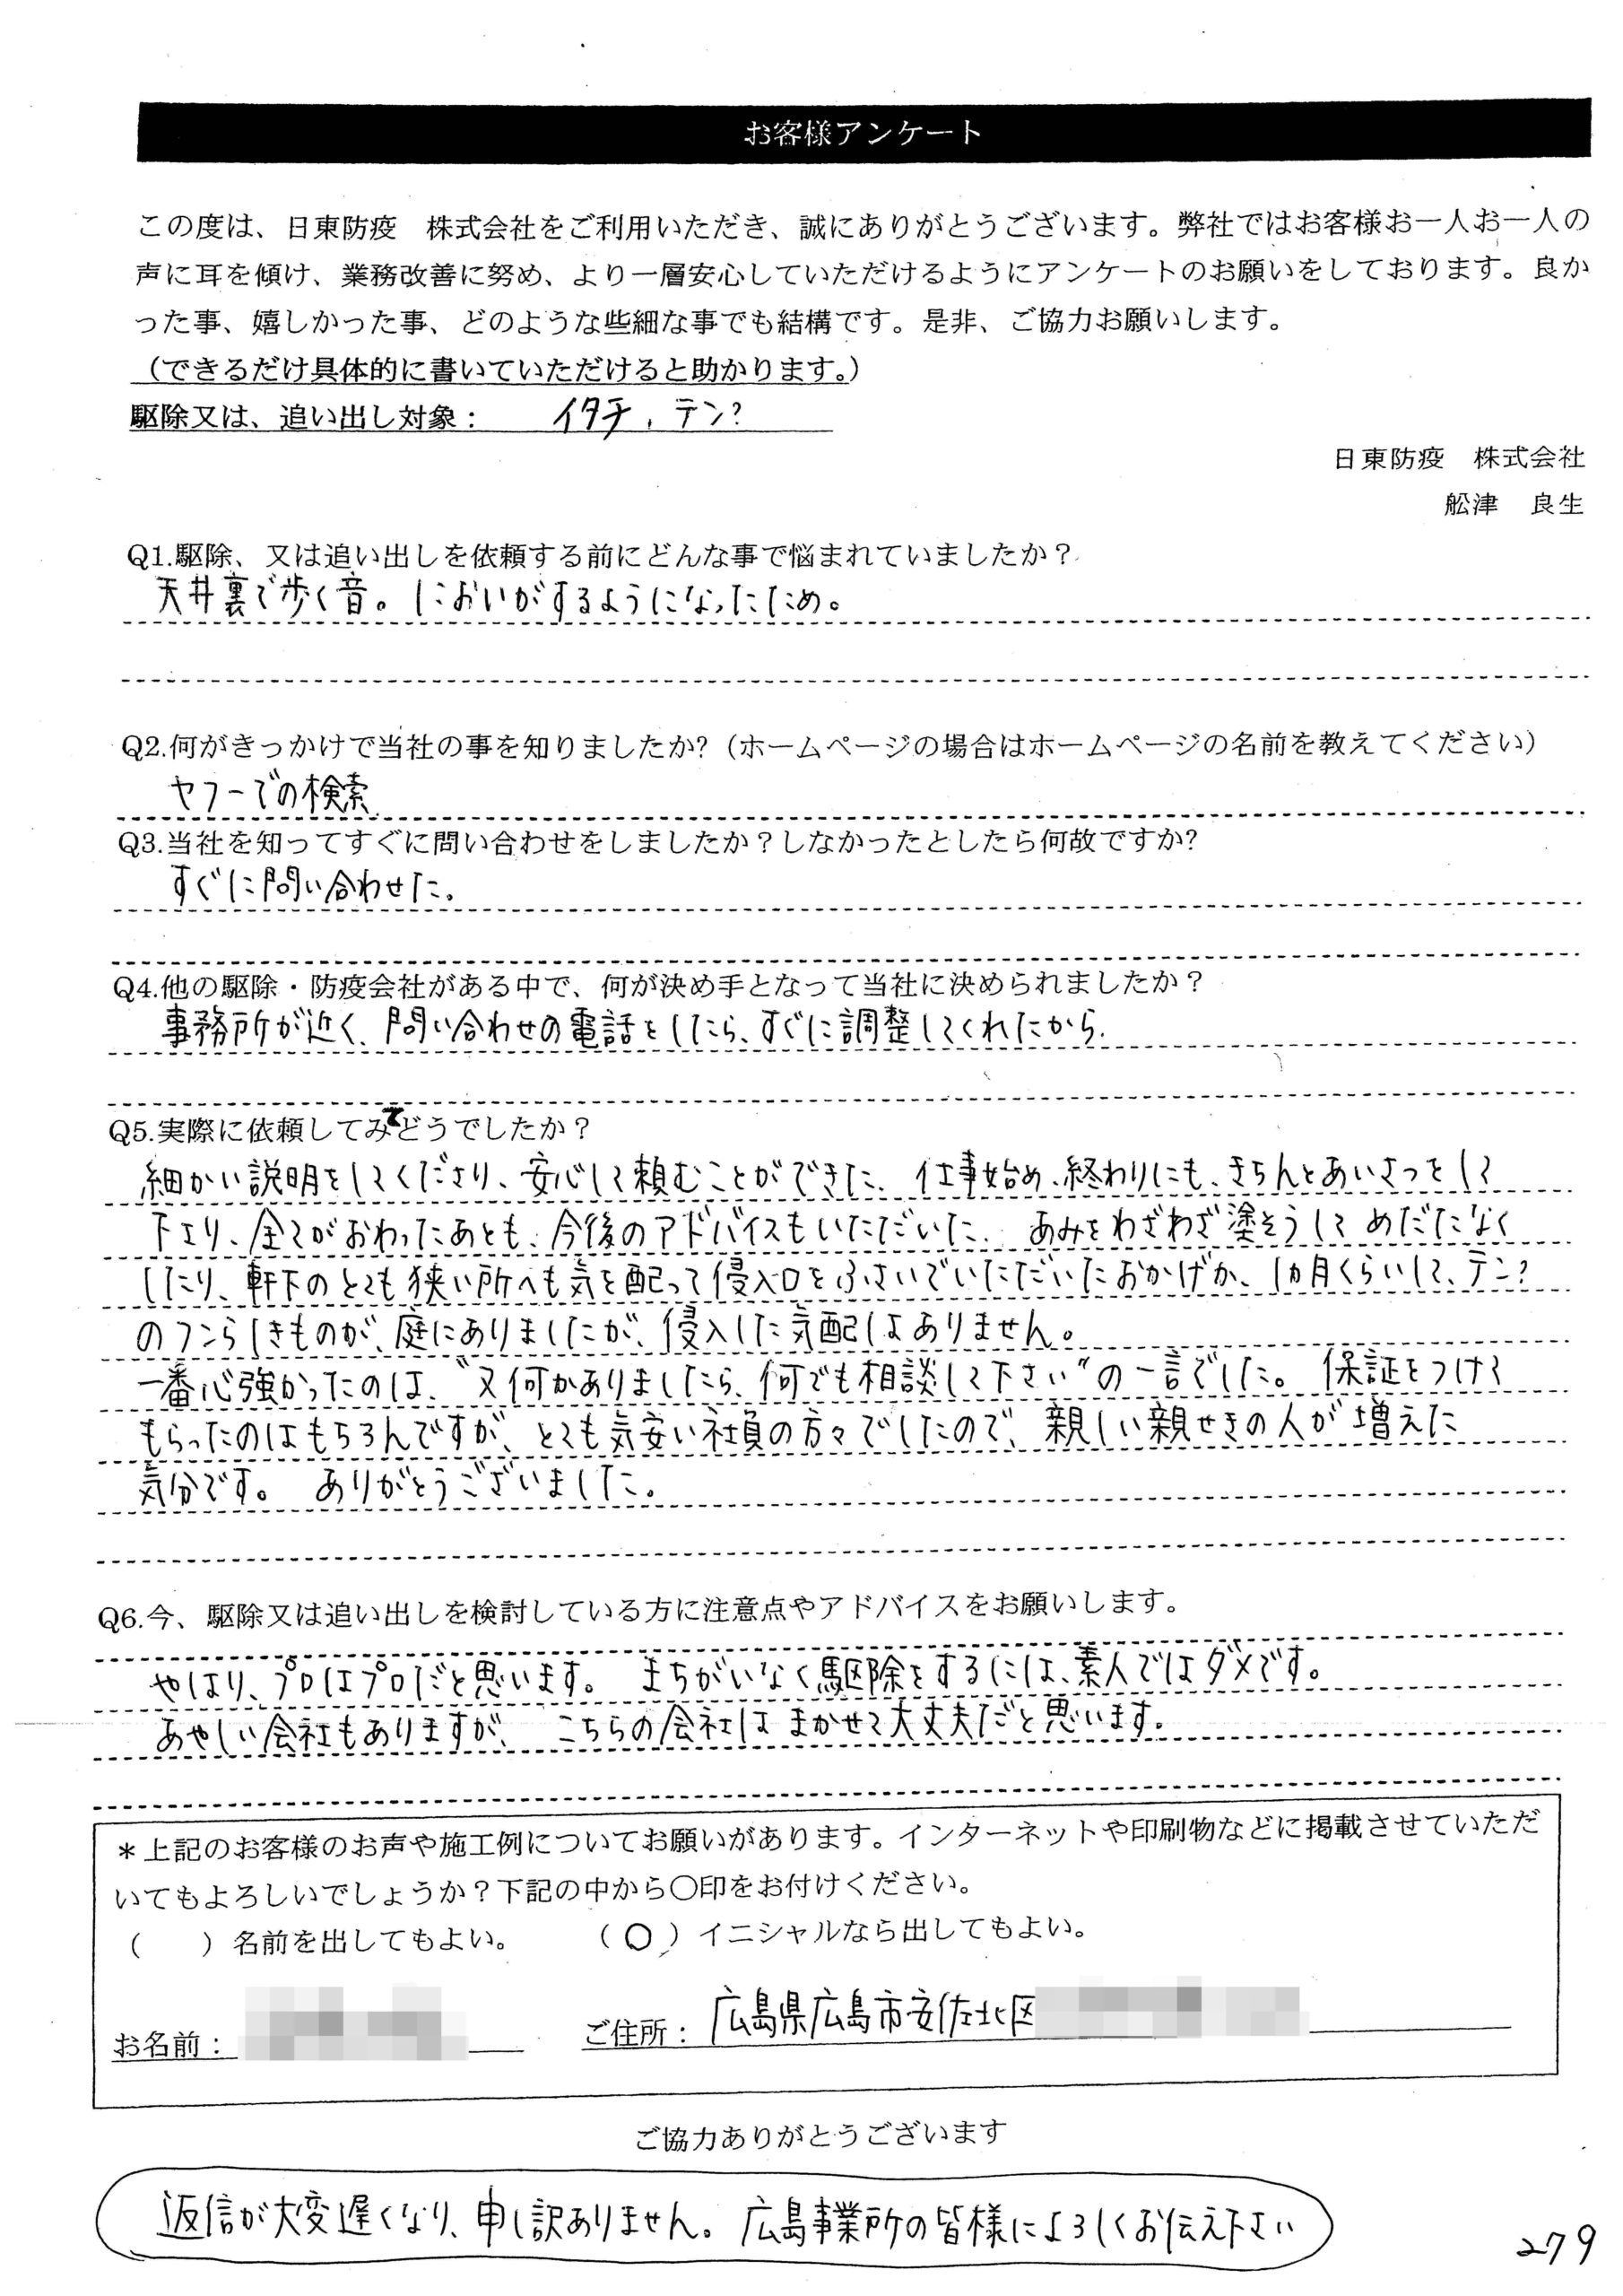 お客様アンケート
この度は、日東防疫　株式会社をご利用いただき、誠にありがとうございます。弊社ではお客様お一人お一人の
声に耳を傾け、業務改善に努め、より一層安心していただけるようにアンケートのお願いをしております。良か
った事、嬉しかった事、どのような些細な事でも結構です。是非、ご協力お願いします。
（できるだけ具体的に書いていただけると助かります。）
駆除又は、追い出し対象： イタチ、テン?
日東防疫　株式会社
舩津　良生
Q1.駆除、又は追い出しを依頼する前にどんな事で悩まれていましたか？
天井裏で歩く音。においがするようになったため。
Q2.何がきっかけで当社の事を知りましたか?（ホームページの場合はホームページの名前を教えてください）
ヤフーでの検索
Q3.当社を知ってすぐに問い合わせをしましたか？しなかったとしたら何故ですか?
すぐに問い合わせた。
Q4.他の駆除・防疫会社がある中で、何が決め手となって当社に決められましたか？
事務所が近く、問い合わせの電話をしたら、すぐに調整してくれたから.
Q5.実際に依頼してみてどうでしたか？
細かい説明をしてくださり、安心して頼むことができた. 仕事始め、終わりにも、きちんとあいさつをして
下さり、全てがおわったあとも、今後のアドバイスもいただいた. あみをわざわざ塗そうして めだたなく
したり、軒下のとても狭い所へも気を配って侵入口をふさいでいただいたおかげか、1ヵ月くらいして、テン?
のフンらしきものが、庭にありましたが、侵入した気配はありません。
一番心強かったのは、"又何かありましたら、何でも相談して下さい"の一言でした。保証をつけて
もらったのはもちろんですが、とても気安い社員の方々でしたので、親しい親せきの人が増えた
気分です。 ありがとうございました.
Q6.今、駆除又は追い出しを検討している方に注意点やアドバイスをお願いします。
やはり、プロはプロだと思います。 まちがいなく駆除をするには、素人ではダメです。
あやしい会社もありますが、 こちらの会社は まかせて大丈夫だと思います.
＊上記のお客様のお声や施工例についてお願いがあります。インターネットや印刷物などに掲載させていただ
いてもよろしいでしょうか？下記の中から〇印をお付けください。
（　　）名前を出してもよい。　　（〇）イニシャルなら出してもよい。
お名前：　　ご住所：広島県広島市安佐北区
ご協力ありがとうございます
返信が大変遅くなり、申し訳ありません。広島事業所の皆様によろしくお伝え下さい
279